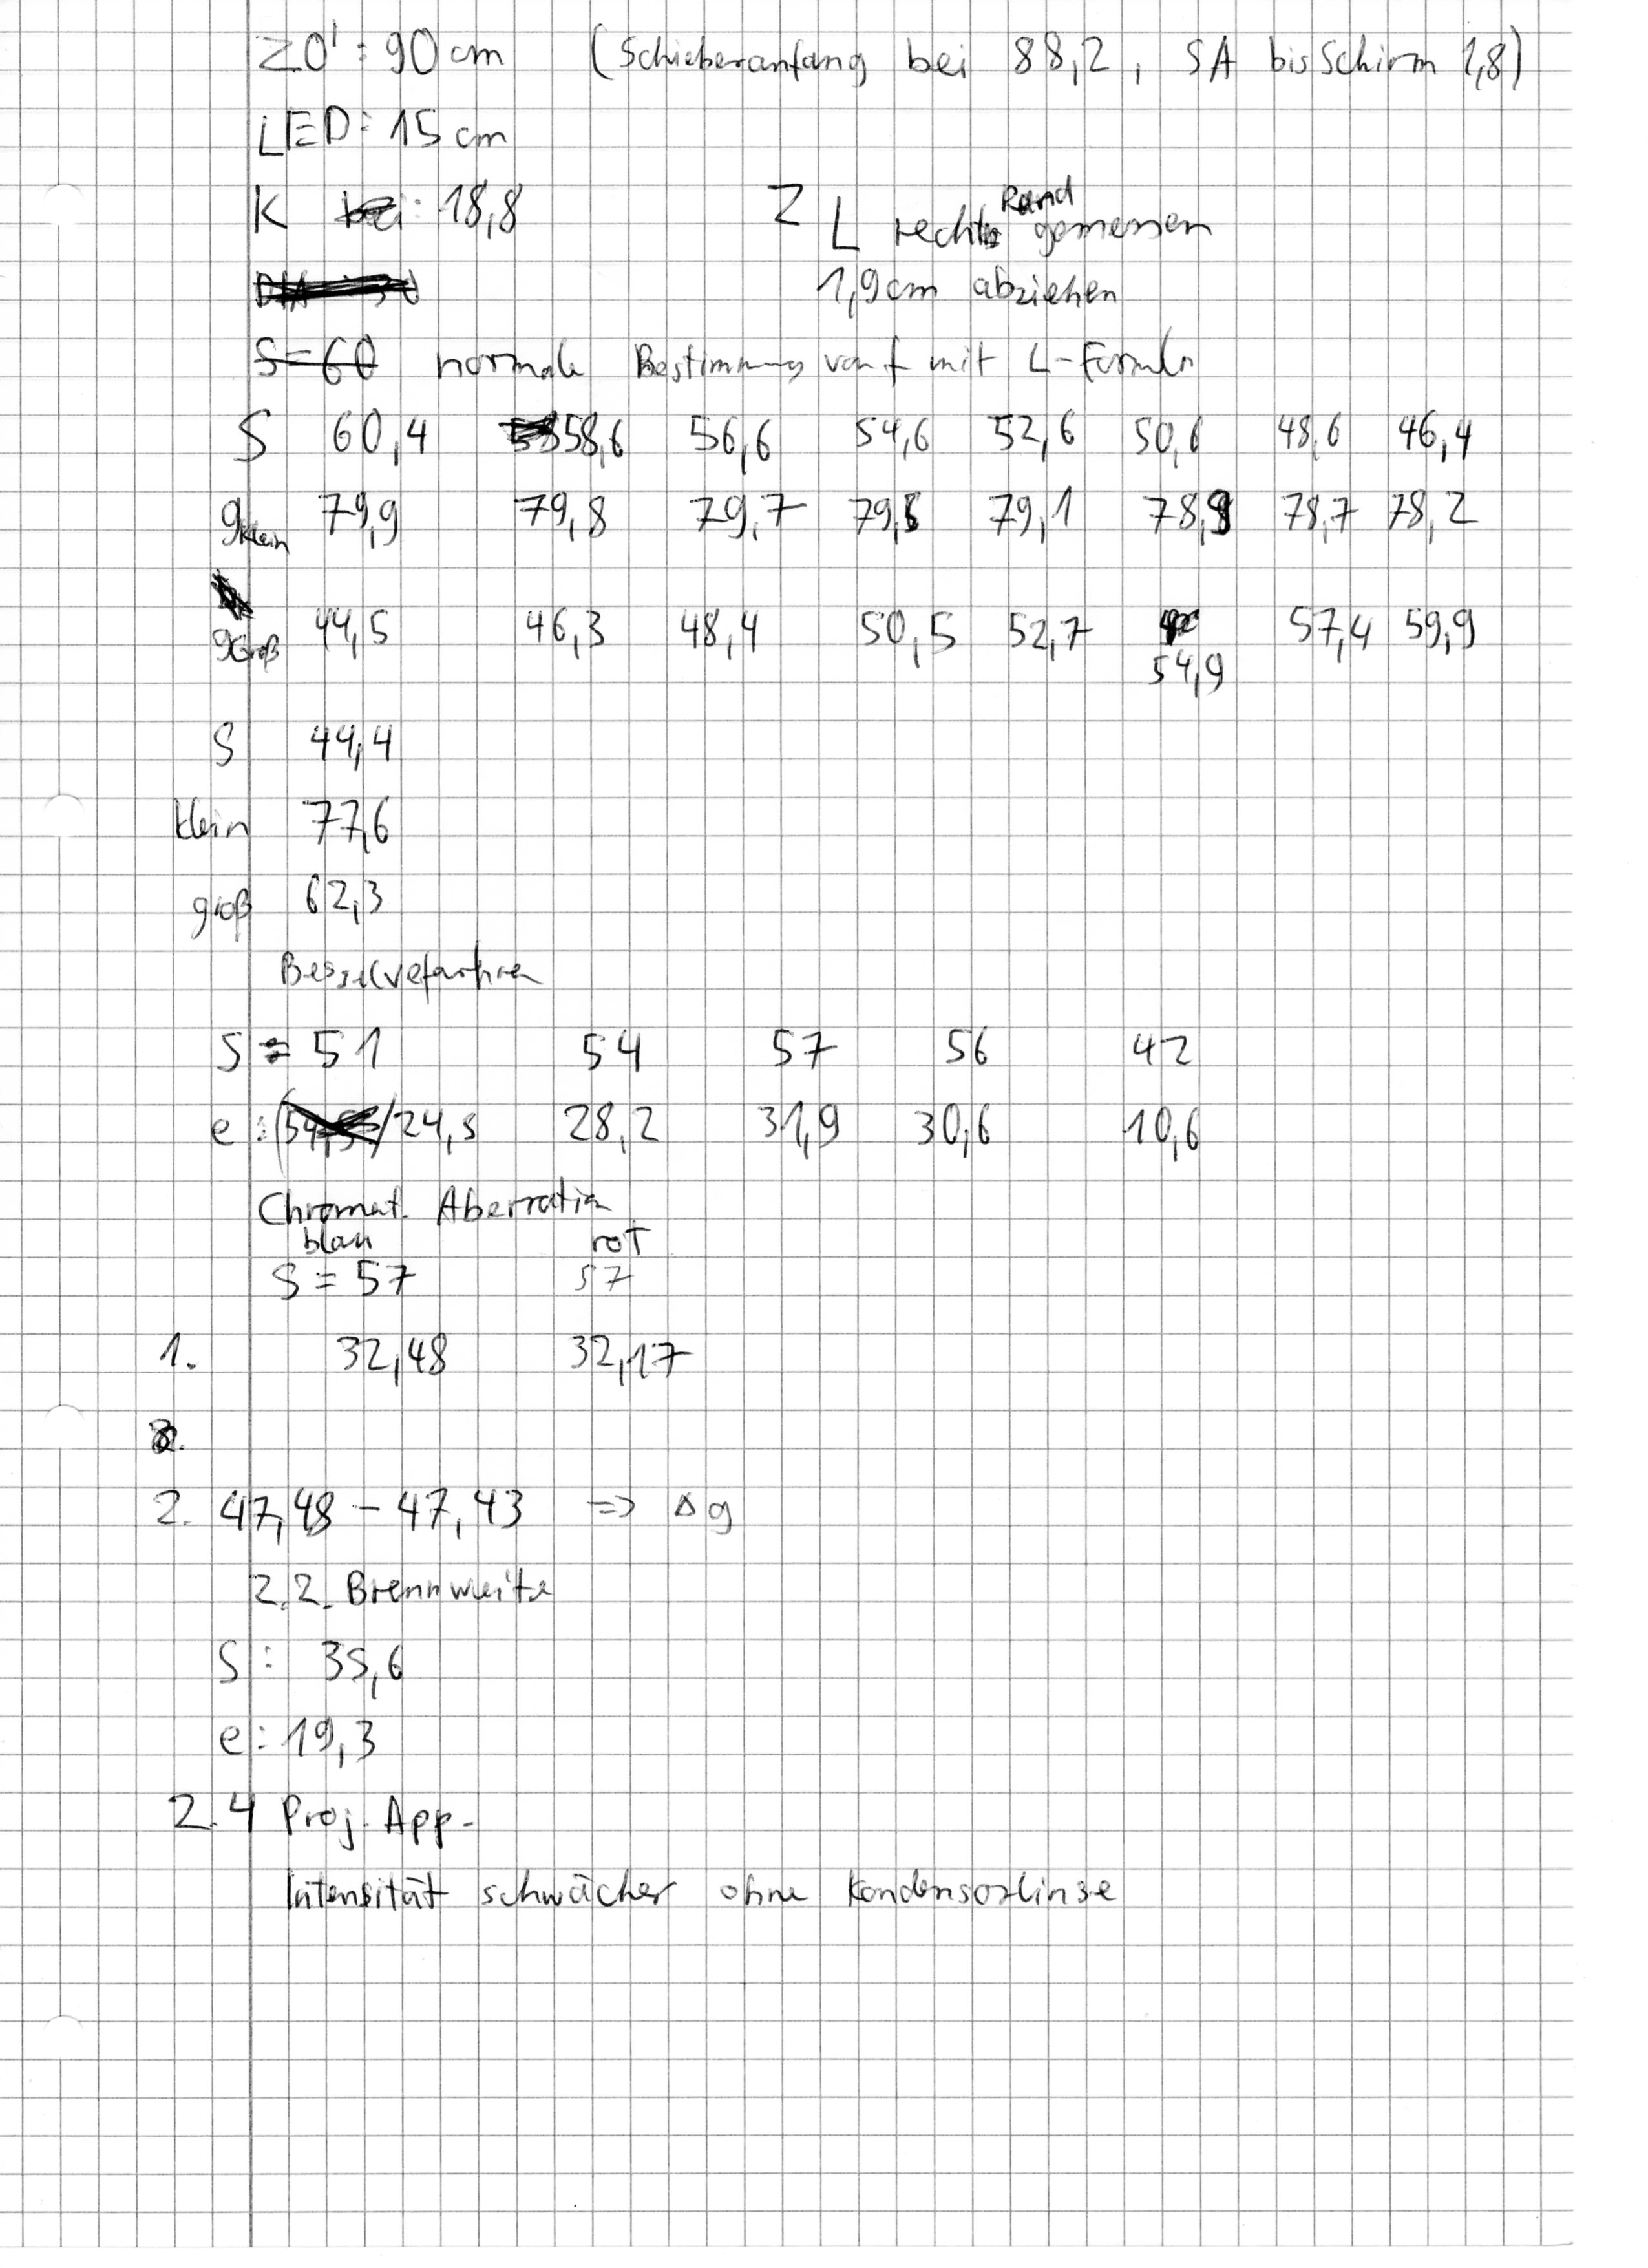 ZO' : 90 cm (Schieberanfang bei 88,2, SA bis Schirm 1,8)
LED : 15 cm
K : 18,8 Z L rechts Rand gemessen
1,9cm abziehen
S=60 normale Bestimmung von f mit L-Formeln
S 60,4 58,6 56,6 54,6 52,6 50,6 48,6 46,4
gklein 79,9 79,8 79,7 79,1 78,7 78,2
gGroß 44,5 46,3 48,4 50,5 52,7 57,4 59,9
54,9
S 44,4
klein 77,6
groß 62,3
Besselvefahren
S = 51 54 57 56 42
e : 24,5 28,2 31,9 30,6 10,6
Chromat. Aberration
blau rot
S = 57 57
1. 32,48 32,17
2. 47,48 – 47,43 => Δg
2.2. Brennweite
S : 35,6
e : 19,3
2.4 Proj. App.
Intensität schwächer ohne Kondensorlinse